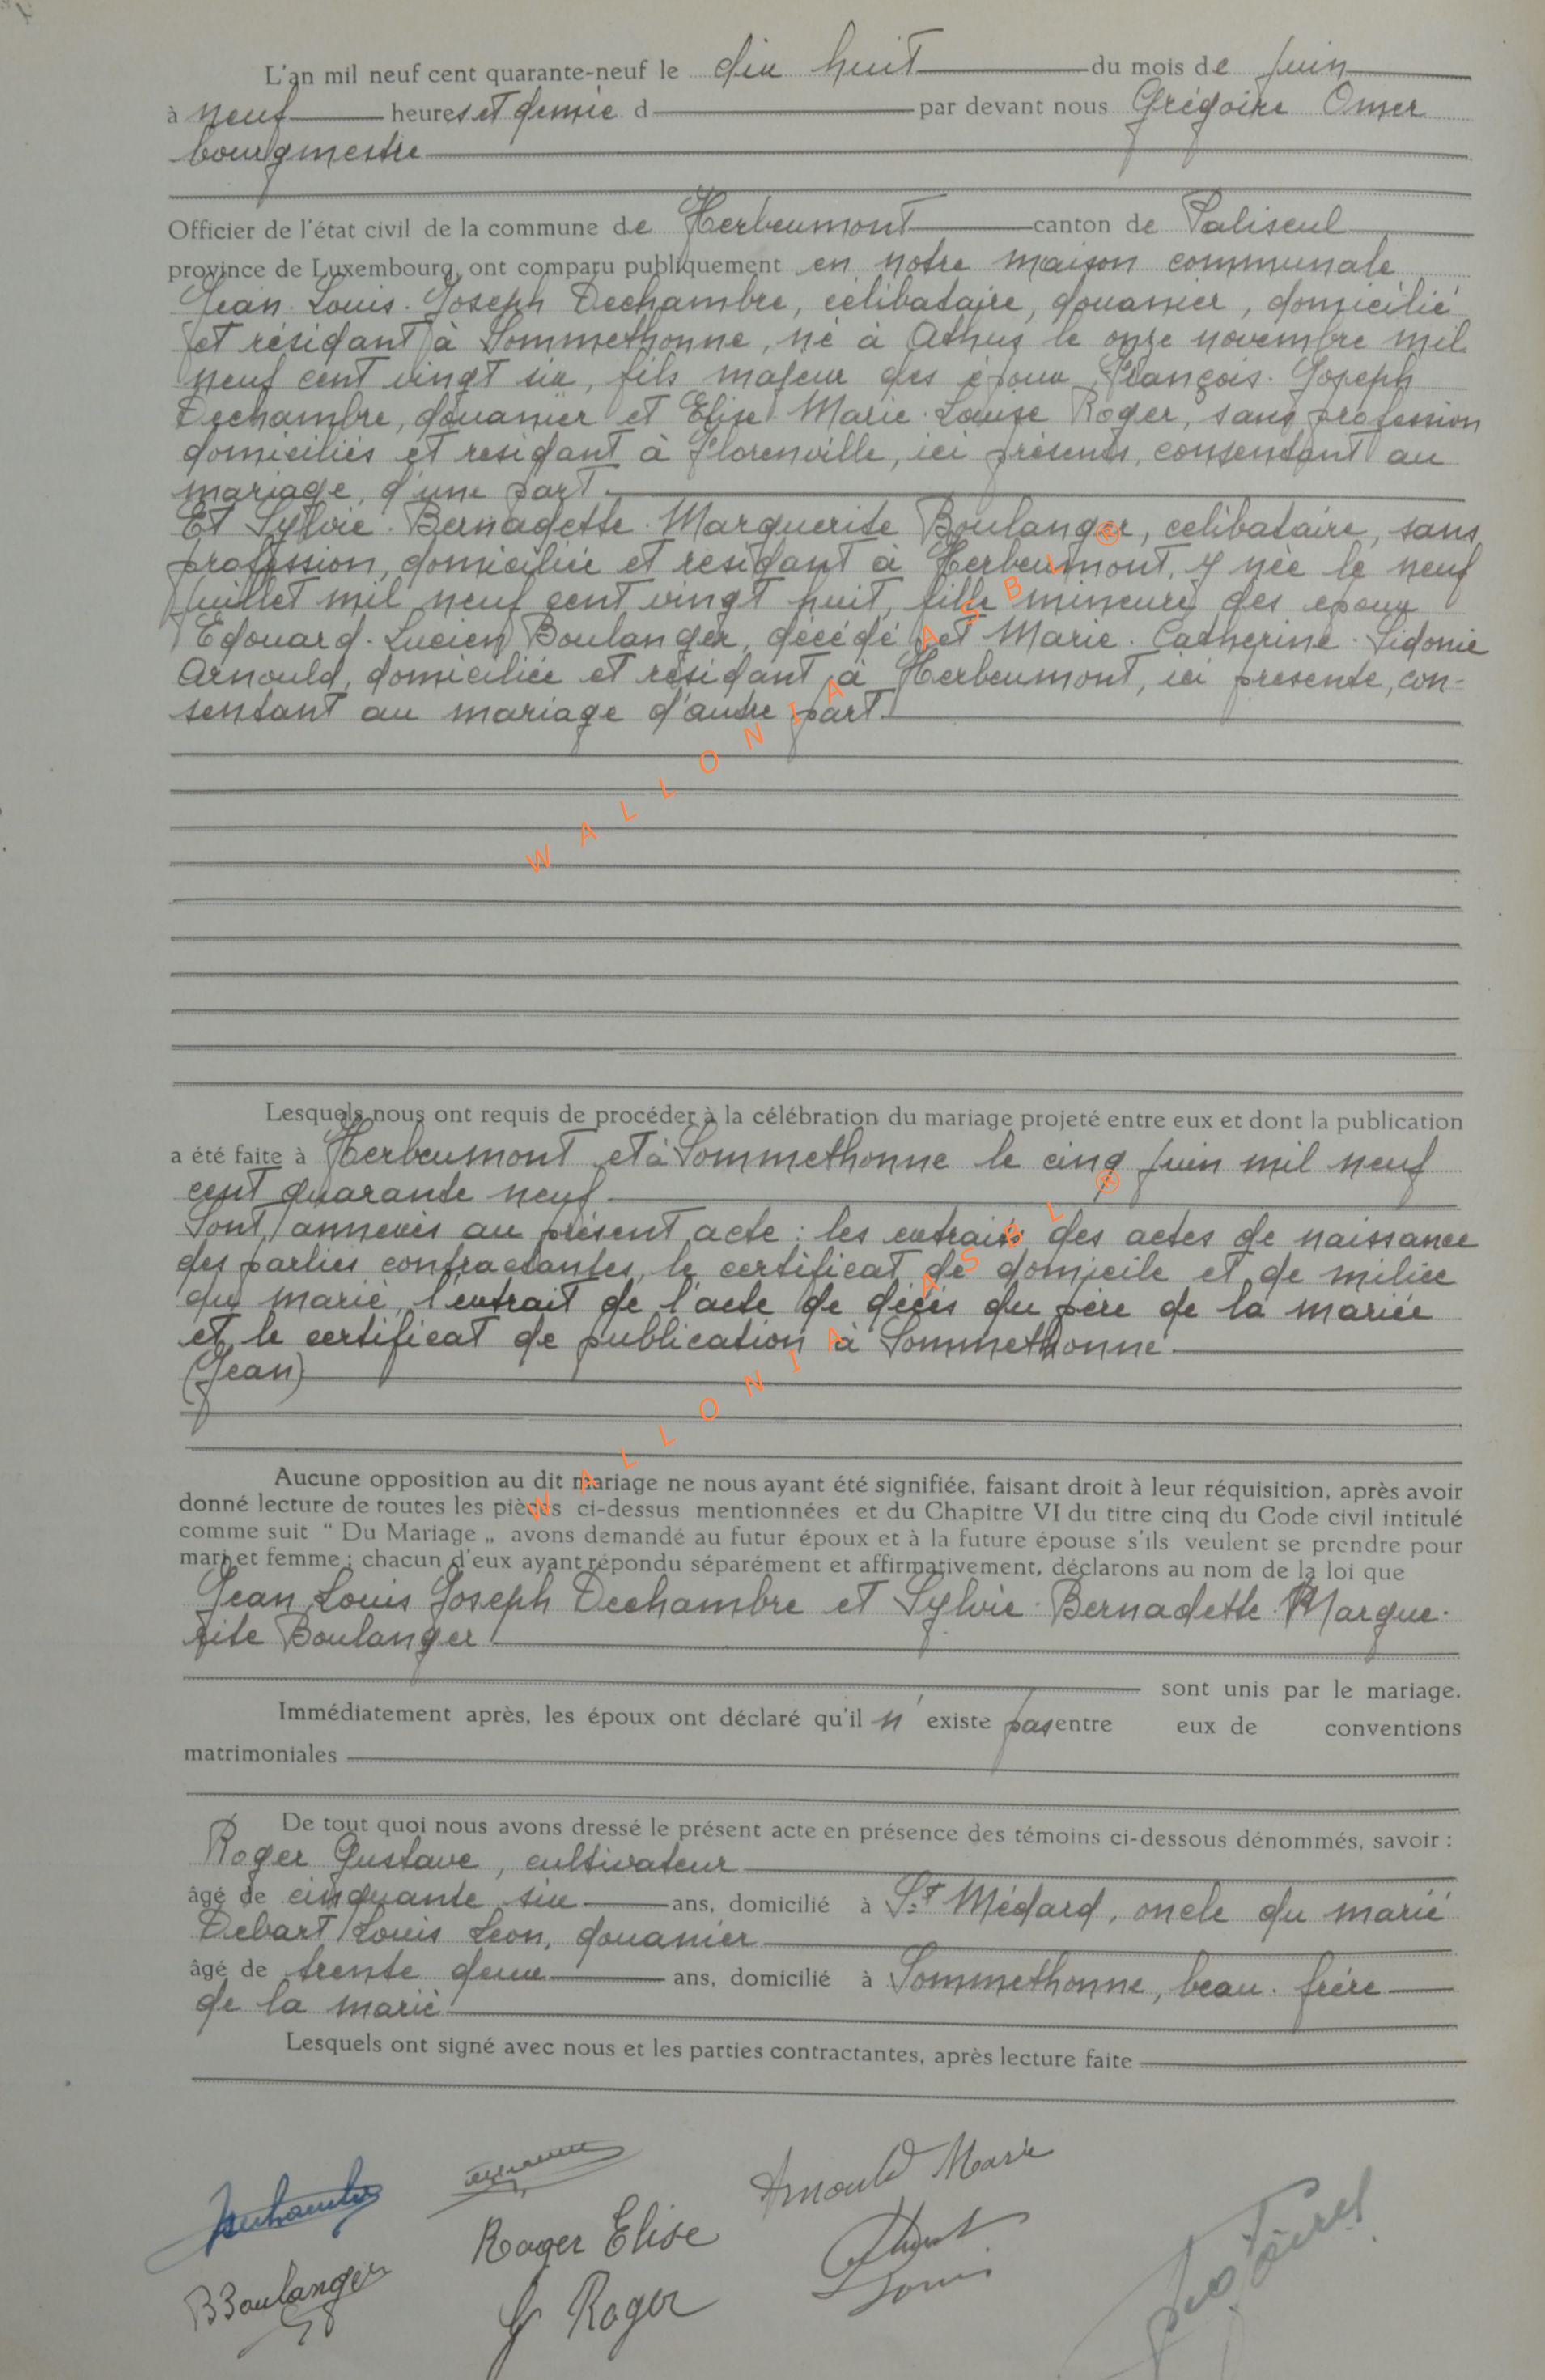 L'an mil neuf cent quarante-neuf le dix huit du mois de juin
à neuf heures et demie d par devant nous Grégoire Omer
bourgmestre
Officier de l'état civil de la commune de Herbeumont canton de Paliseul
province de Luxembourg, ont comparu publiquement en notre maison communale
Jean-Louis-Joseph Dechambre, célibataire, douanier, domicilié
et résidant à Sommethonne, né à Athus le onze novembre mil
neuf cent vingt six, fils majeur des époux François-Joseph
Dechambre, douanier et Elise Marie-Louise Roger, sans profession
domiciliés et résidant à Florenville, ici présents, consentant au
mariage, d'une part.
Et Sylvie-Bernadette-Marguerite Boulanger, célibataire, sans
profession, domiciliée et résidant à Herbeumont, y née le neuf
juillet mil neuf cent vingt huit, fille mineure des époux
Edouard-Lucien Boulanger, décédé et Marie-Catherine-Sidonie
Arnould, domiciliée et résidant à Herbeumont, ici présente, con-
sentant au mariage d'autre part.
WALLONIA ASBL ®
Lesquels nous ont requis de procéder à la célébration du mariage projeté entre eux et dont la publication
a été faite à Herbeumont et à Sommethonne le cinq juin mil neuf
cent quarante neuf
Sont annexés au présent acte : les extraits des actes de naissance
des parties contractantes, le certificat de domicile et de milice
du marié, l'extrait de l'acte de décès du père de la mariée
et le certificat de publication à Sommethonne.
(Jean)
WALLONIA ASBL ®
Aucune opposition au dit mariage ne nous ayant été signifiée, faisant droit à leur réquisition, après avoir
donné lecture de toutes les pièces ci-dessus mentionnées et du Chapitre VI du titre cinq du Code civil intitulé
comme suit " Du Mariage „ avons demandé au futur époux et à la future épouse s'ils veulent se prendre pour
mari et femme ; chacun d'eux ayant répondu séparément et affirmativement, déclarons au nom de la loi que
Jean Louis Joseph Dechambre et Sylvie-Bernadette-Margue-
rite Boulanger
sont unis par le mariage.
Immédiatement après, les époux ont déclaré qu'il n'existe pas entre eux de conventions
matrimoniales
De tout quoi nous avons dressé le présent acte en présence des témoins ci-dessous dénommés, savoir :
Roger Gustave, cultivateur
âgé de cinquante six ans, domicilié à St Médard, oncle du marié
Debart Louis Leon, douanier
âgé de trente deux ans, domicilié à Sommethonne, beau-frère
de la marié
Lesquels ont signé avec nous et les parties contractantes, après lecture faite
Arnould Marie
Roger Elise
BBoulanger
G Roger
Louis